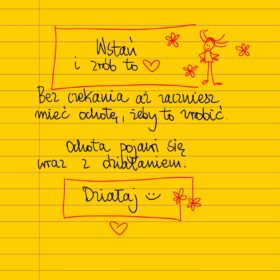 Wstań
i zrób to
Bez czekania aż zaczniesz
mieć ochotę, żeby to zrobić.
Ochota pojawi się
wraz z działaniem.
Działaj